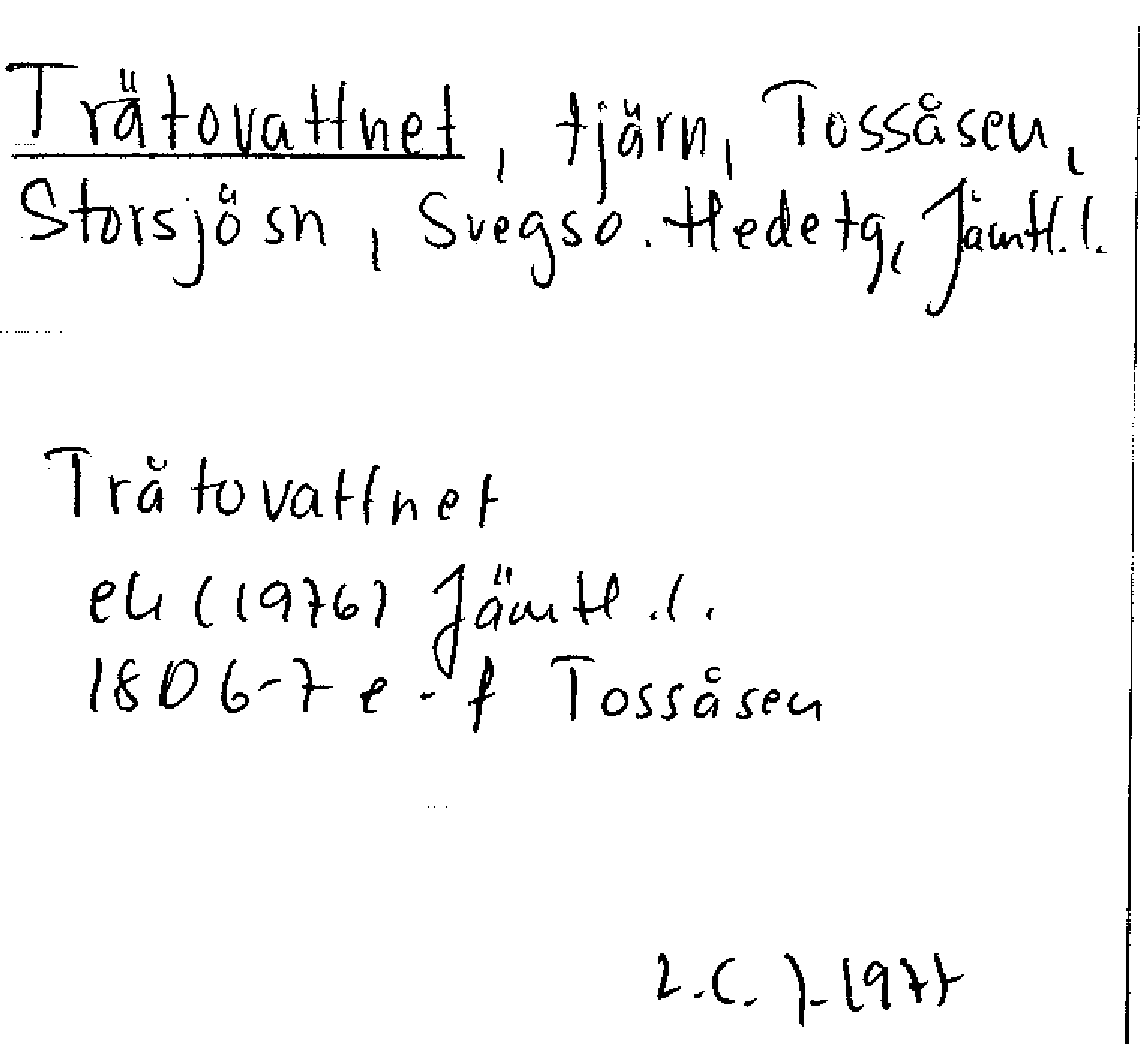 Trätovattnet, tjärn, Tossåsen,
Storsjö sn, Svegs o. Hede tg, Jämtl. l.
Tråtovattnet
ek (1976) Jämtl. l.
18D 6-7 e-f Tossåsen
1977